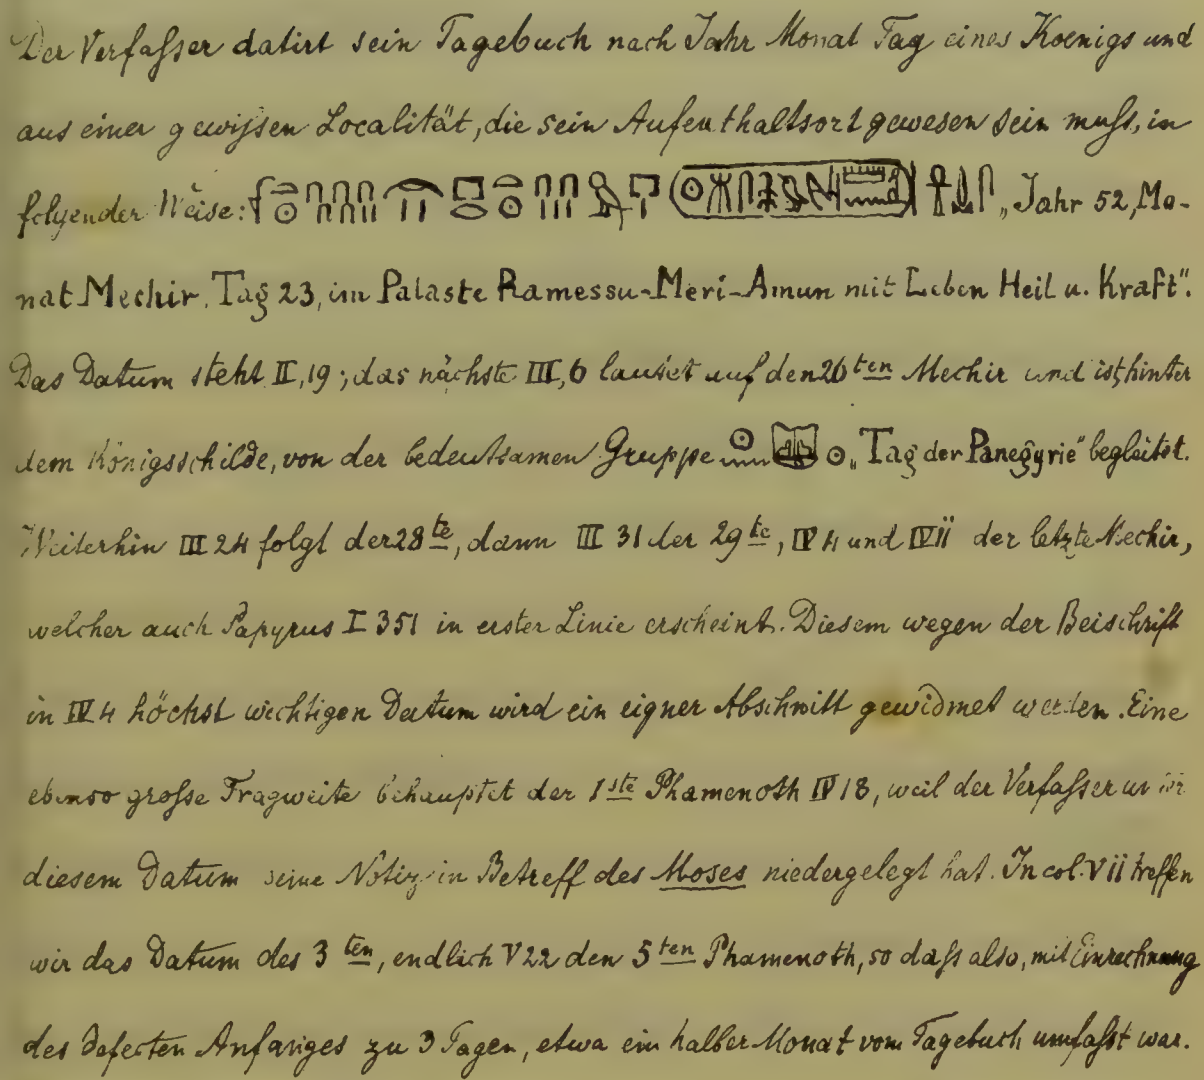 Der Verfaſser datirt sein Tagebuch nach Jahr Monat Tag eines Koenigs und
aus einer gewiſsen Localität, die sein Aufenthaltsort gewesen sein muſs, in
folgender Weise: „Jahr 52, Mo-
nat Mechir, Tag 23, im Palaste Ramessu-Meri-Amun mit Leben Heil u. Kraft".
Das Datum steht II, 19; das nächste III, 6 lautet auf den 26ten Mechir und ist, hinter
dem Königsschilde, von der bedeutsamen Gruppe „Tag der Panegyrie" begleitet.
Weiterhin III 24 folgt der 28te, dann III 31 der 29te, IV 4 und IV ii der letzte Mechir,
welcher auch Papyrus I 351 in erster Linie erscheint. Diesem wegen der Beischrift
in IV 4 höchst wichtigen Datum wird ein eigner Abschnitt gewidmet werden. Eine
ebenso groſse Tragweite behauptet der 1ste Phamenoth IV 18, weil der Verfaſser
diesem Datum seine Notiz in Betreff des Moses niedergelegt hat. In col. V ii treffen
wir das Datum des 3ten, endlich V 22 den 5ten Phamenoth, so daſs also, mit Einrechnung
des defecten Anfanges zu 3 Tagen, etwa ein halber Monat vom Tagebuch umfaſst war.